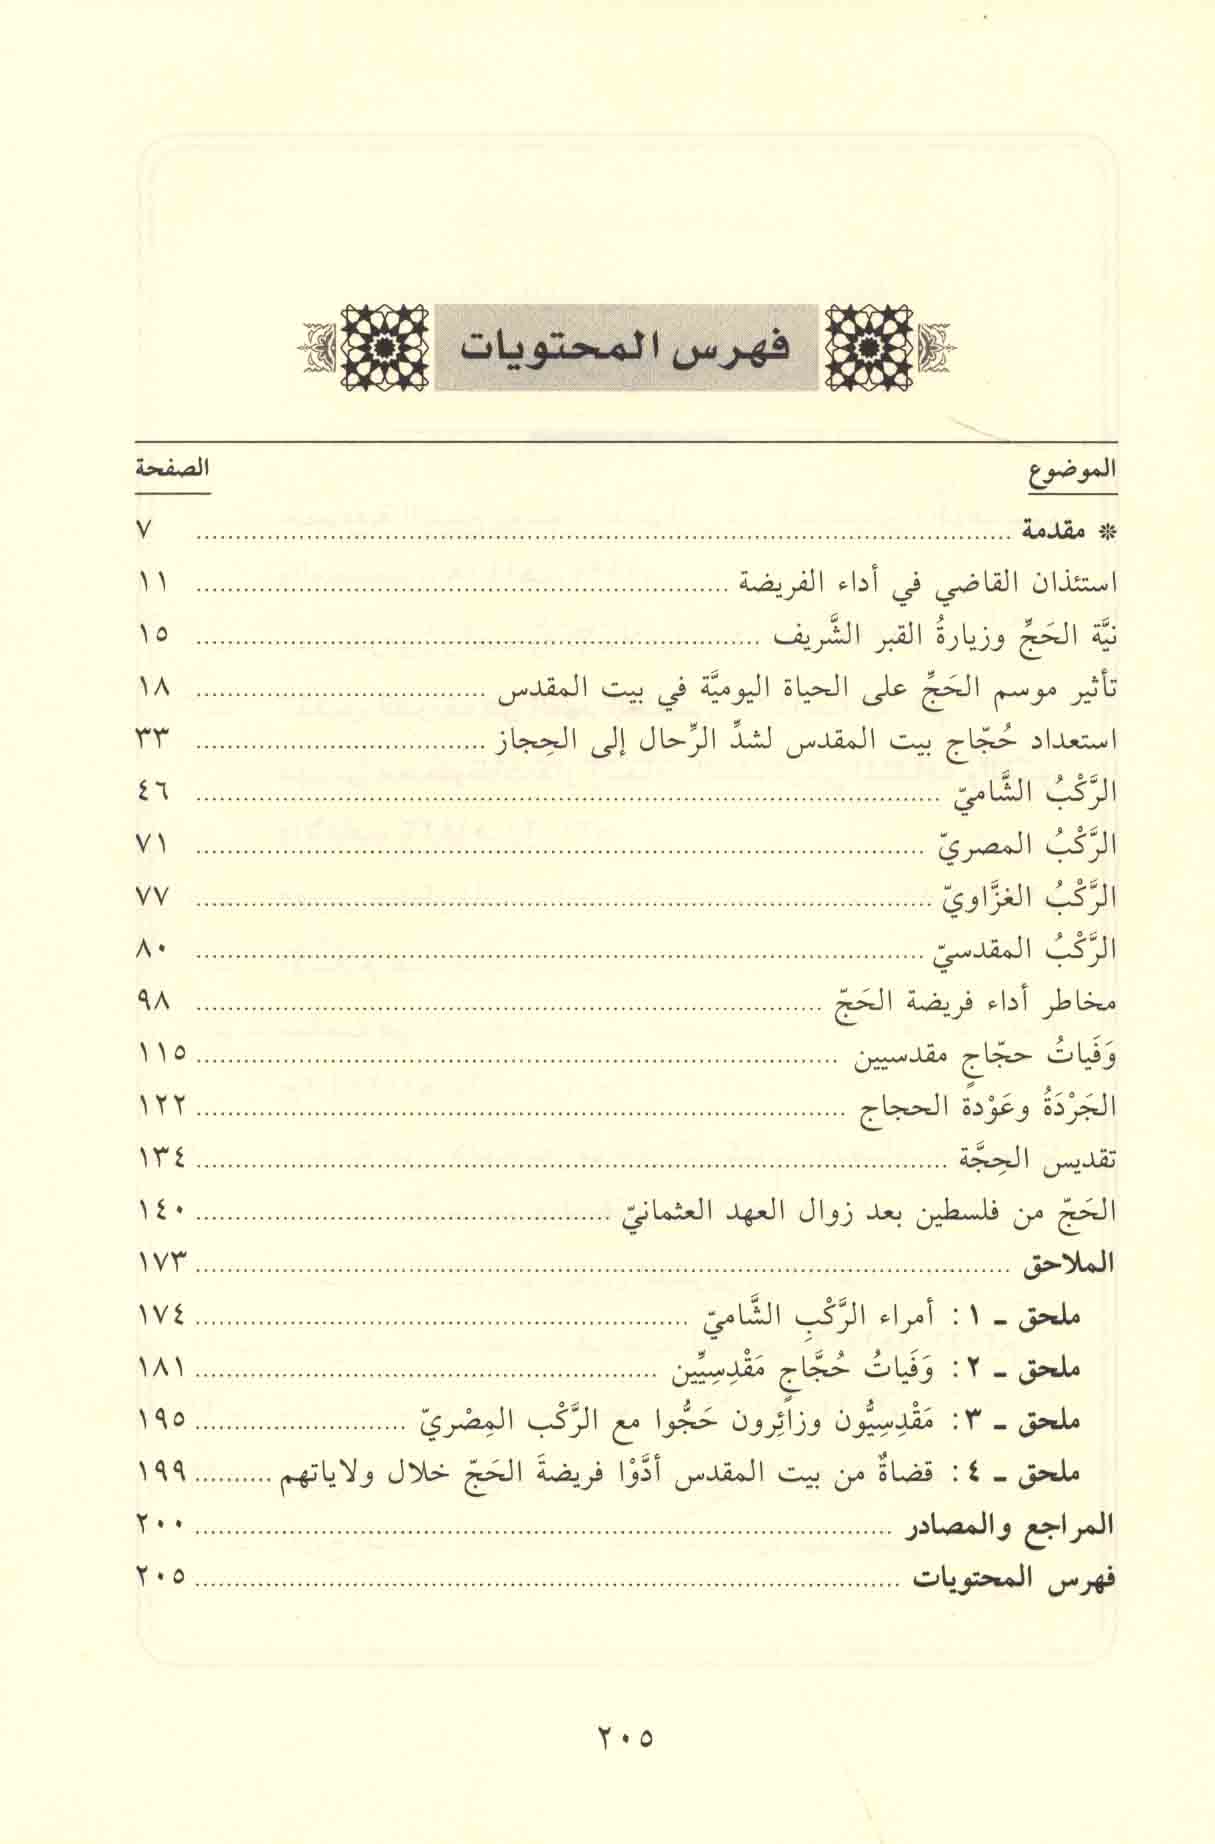 فهرس المحتويات
الموضوع الصفحة
* مقدمة ........ ٧
استئذان القاضي في أداء الفريضة ........ ١١
نيَّة الحَجِّ وزيارةُ القبر الشَّريف ........ ١٥
تأثير موسم الحَجِّ على الحياة اليوميَّة في بيت المقدس ........ ١٨
استعداد حُجّاج بيت المقدس لشدِّ الرِّحال إلى الحِجاز ........ ٣٣
الرَّكْبُ الشَّاميّ ........ ٤٦
الرَّكْبُ المصريّ ........ ٧١
الرَّكْبُ الغزَّاويّ ........ ٧٧
الرَّكْبُ المقدسيّ ........ ٨٠
مخاطر أداء فريضة الحَجّ ........ ٩٨
وَفَياتُ حجّاجٍ مقدسيين ........ ١١٥
الجَرْدَةُ وعَوْدة الحجاج ........ ١٢٢
تقديس الحِجَّة ........ ١٣٤
الحَجّ من فلسطين بعد زوال العهد العثمانيّ ........ ١٤٠
الملاحق ........ ١٧٣
ملحق ـ ١: أمراء الرَّكْبِ الشَّاميّ ........ ١٧٤
ملحق ـ ٢: وَفَياتُ حُجَّاجٍ مَقْدِسِيِّين ........ ١٨١
ملحق ـ ٣: مَقْدِسِيُّون وزائِرون حَجُّوا مع الرَّكْب المِصْريّ ........ ١٩٥
ملحق ـ ٤: قضاةٌ من بيت المقدس أدَّوْا فريضةَ الحَجّ خلال ولاياتهم ........ ١٩٩
المراجع والمصادر ........ ٢٠٠
فهرس المحتويات ........ ٢٠٥
٢٠٥